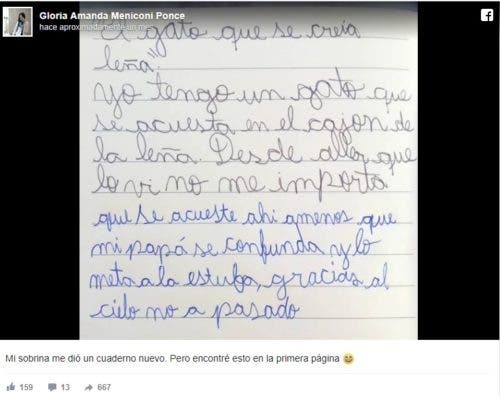 Gloria Amanda Meniconi Ponce
hace aproximadamente un mes
El gato que se creia
leña"
Yo tengo un gato que
se acuesta en el cajon de
la leña. Desde aller que
lo vi no me importa
que se acueste ahi amenos que
mi papá se confunda y lo
meta a la estufa, gracias al
cielo no a pasado
Mi sobrina me dió un cuaderno nuevo. Pero encontré esto en la primera página 😄
159 13 667